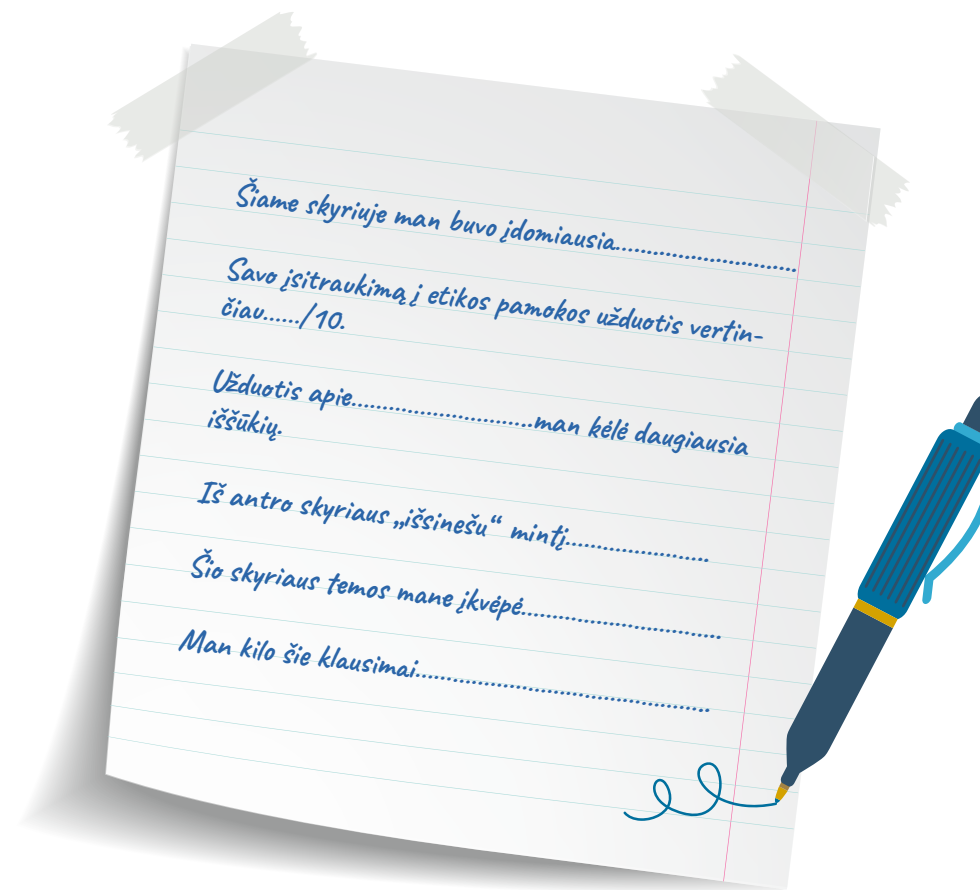 Šiame skyriuje man buvo įdomiausia..............................
Savo įsitraukimą į etikos pamokos užduotis vertin-
čiau....../10.
Užduotis apie..............................man kėlė daugiausia
iššūkių.
Iš antro skyriaus „išsinešu“ mintį.......................
Šio skyriaus temos mane įkvėpė................................
Man kilo šie klausimai................................................